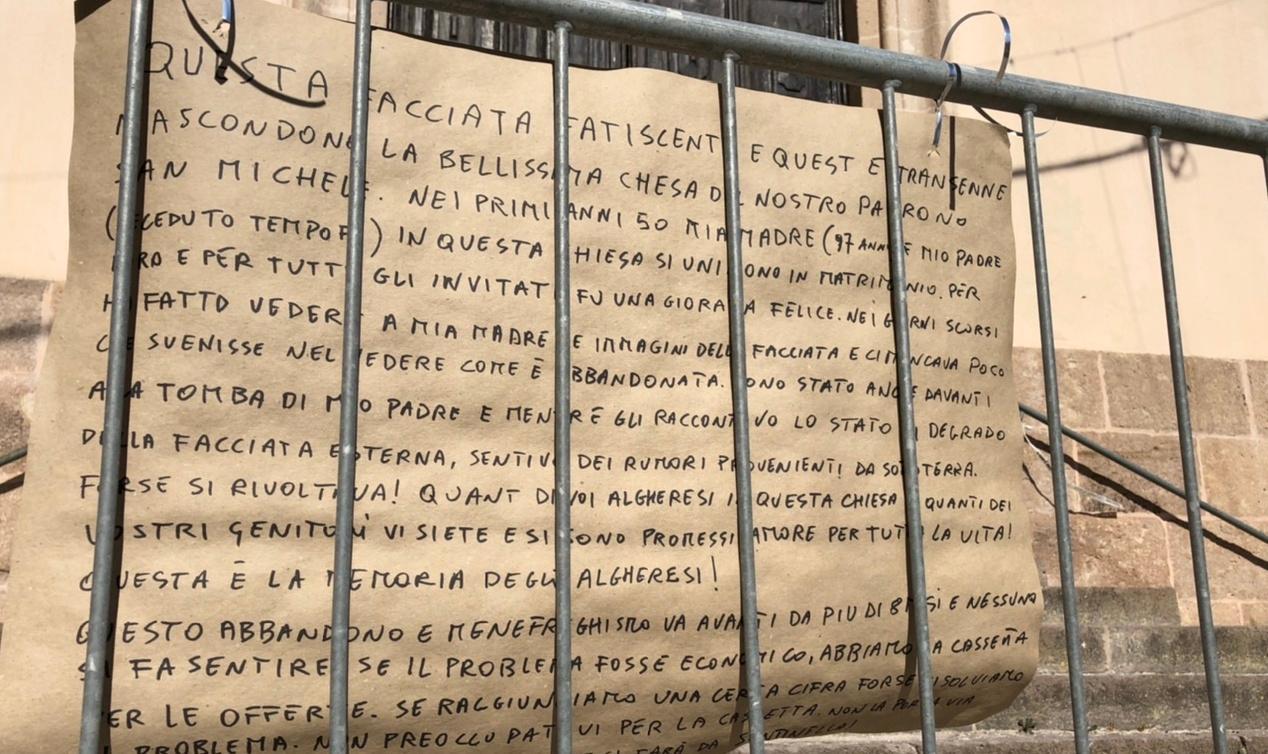 QUESTA FACCIATA FATISCENTE E QUESTE TRANSENNE
NASCONDONO LA BELLISSIMA CHESA DEL NOSTRO PATRONO
SAN MICHELE. NEI PRIMI ANNI 50 MIA MADRE (97 ANNI E MIO PADRE
(DECEDUTO TEMPO FA) IN QUESTA CHIESA SI UNIRONO IN MATRIMONIO. PER
LORO E PER TUTTI GLI INVITATI FU UNA GIORNATA FELICE. NEI GIORNI SCORSI
HO FATTO VEDERE A MIA MADRE LE IMMAGINI DELLA FACCIATA E CI MANCAVA POCO
CHE SVENISSE NEL VEDERE COME È ABBANDONATA. SONO STATO ANCHE DAVANTI
ALLA TOMBA DI MIO PADRE E MENTRE GLI RACCONTAVO LO STATO DI DEGRADO
DELLA FACCIATA ESTERNA, SENTIVO DEI RUMORI PROVENIENTI DA SOTTOTERRA.
FORSE SI RIVOLTAVA! QUANTI DI VOI ALGHERESI IN QUESTA CHIESA E QUANTI DEI
VOSTRI GENITORI VI SIETE E SI SONO PROMESSI AMORE PER TUTTA LA VITA!
QUESTA È LA MEMORIA DEGLI ALGHERESI!
QUESTO ABBANDONO E MENEFREGHISMO VA AVANTI DA PIU DI 8 MESI E NESSUNO
SI FA SENTIRE. SE IL PROBLEMA FOSSE ECONOMICO, ABBIAMO LA CASSETTA
PER LE OFFERTE. SE RAGGIUNGIAMO UNA CERTA CIFRA FORSE RISOLVIAMO
IL PROBLEMA. NON PREOCCUPATEVI PER LA CASSETTA. NON LA PORTA VIA
SI FARÀ DA SENTINELLA!